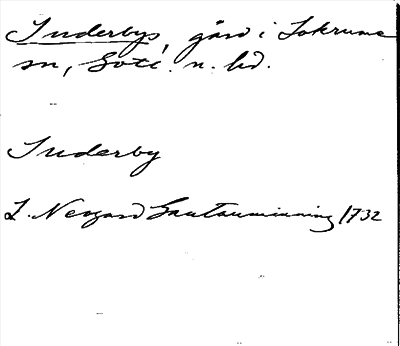 Suderbys, gård i Lokrume
sn, Gotl. n. hd.
Suderby
L. Neogard Gautauminning 1732